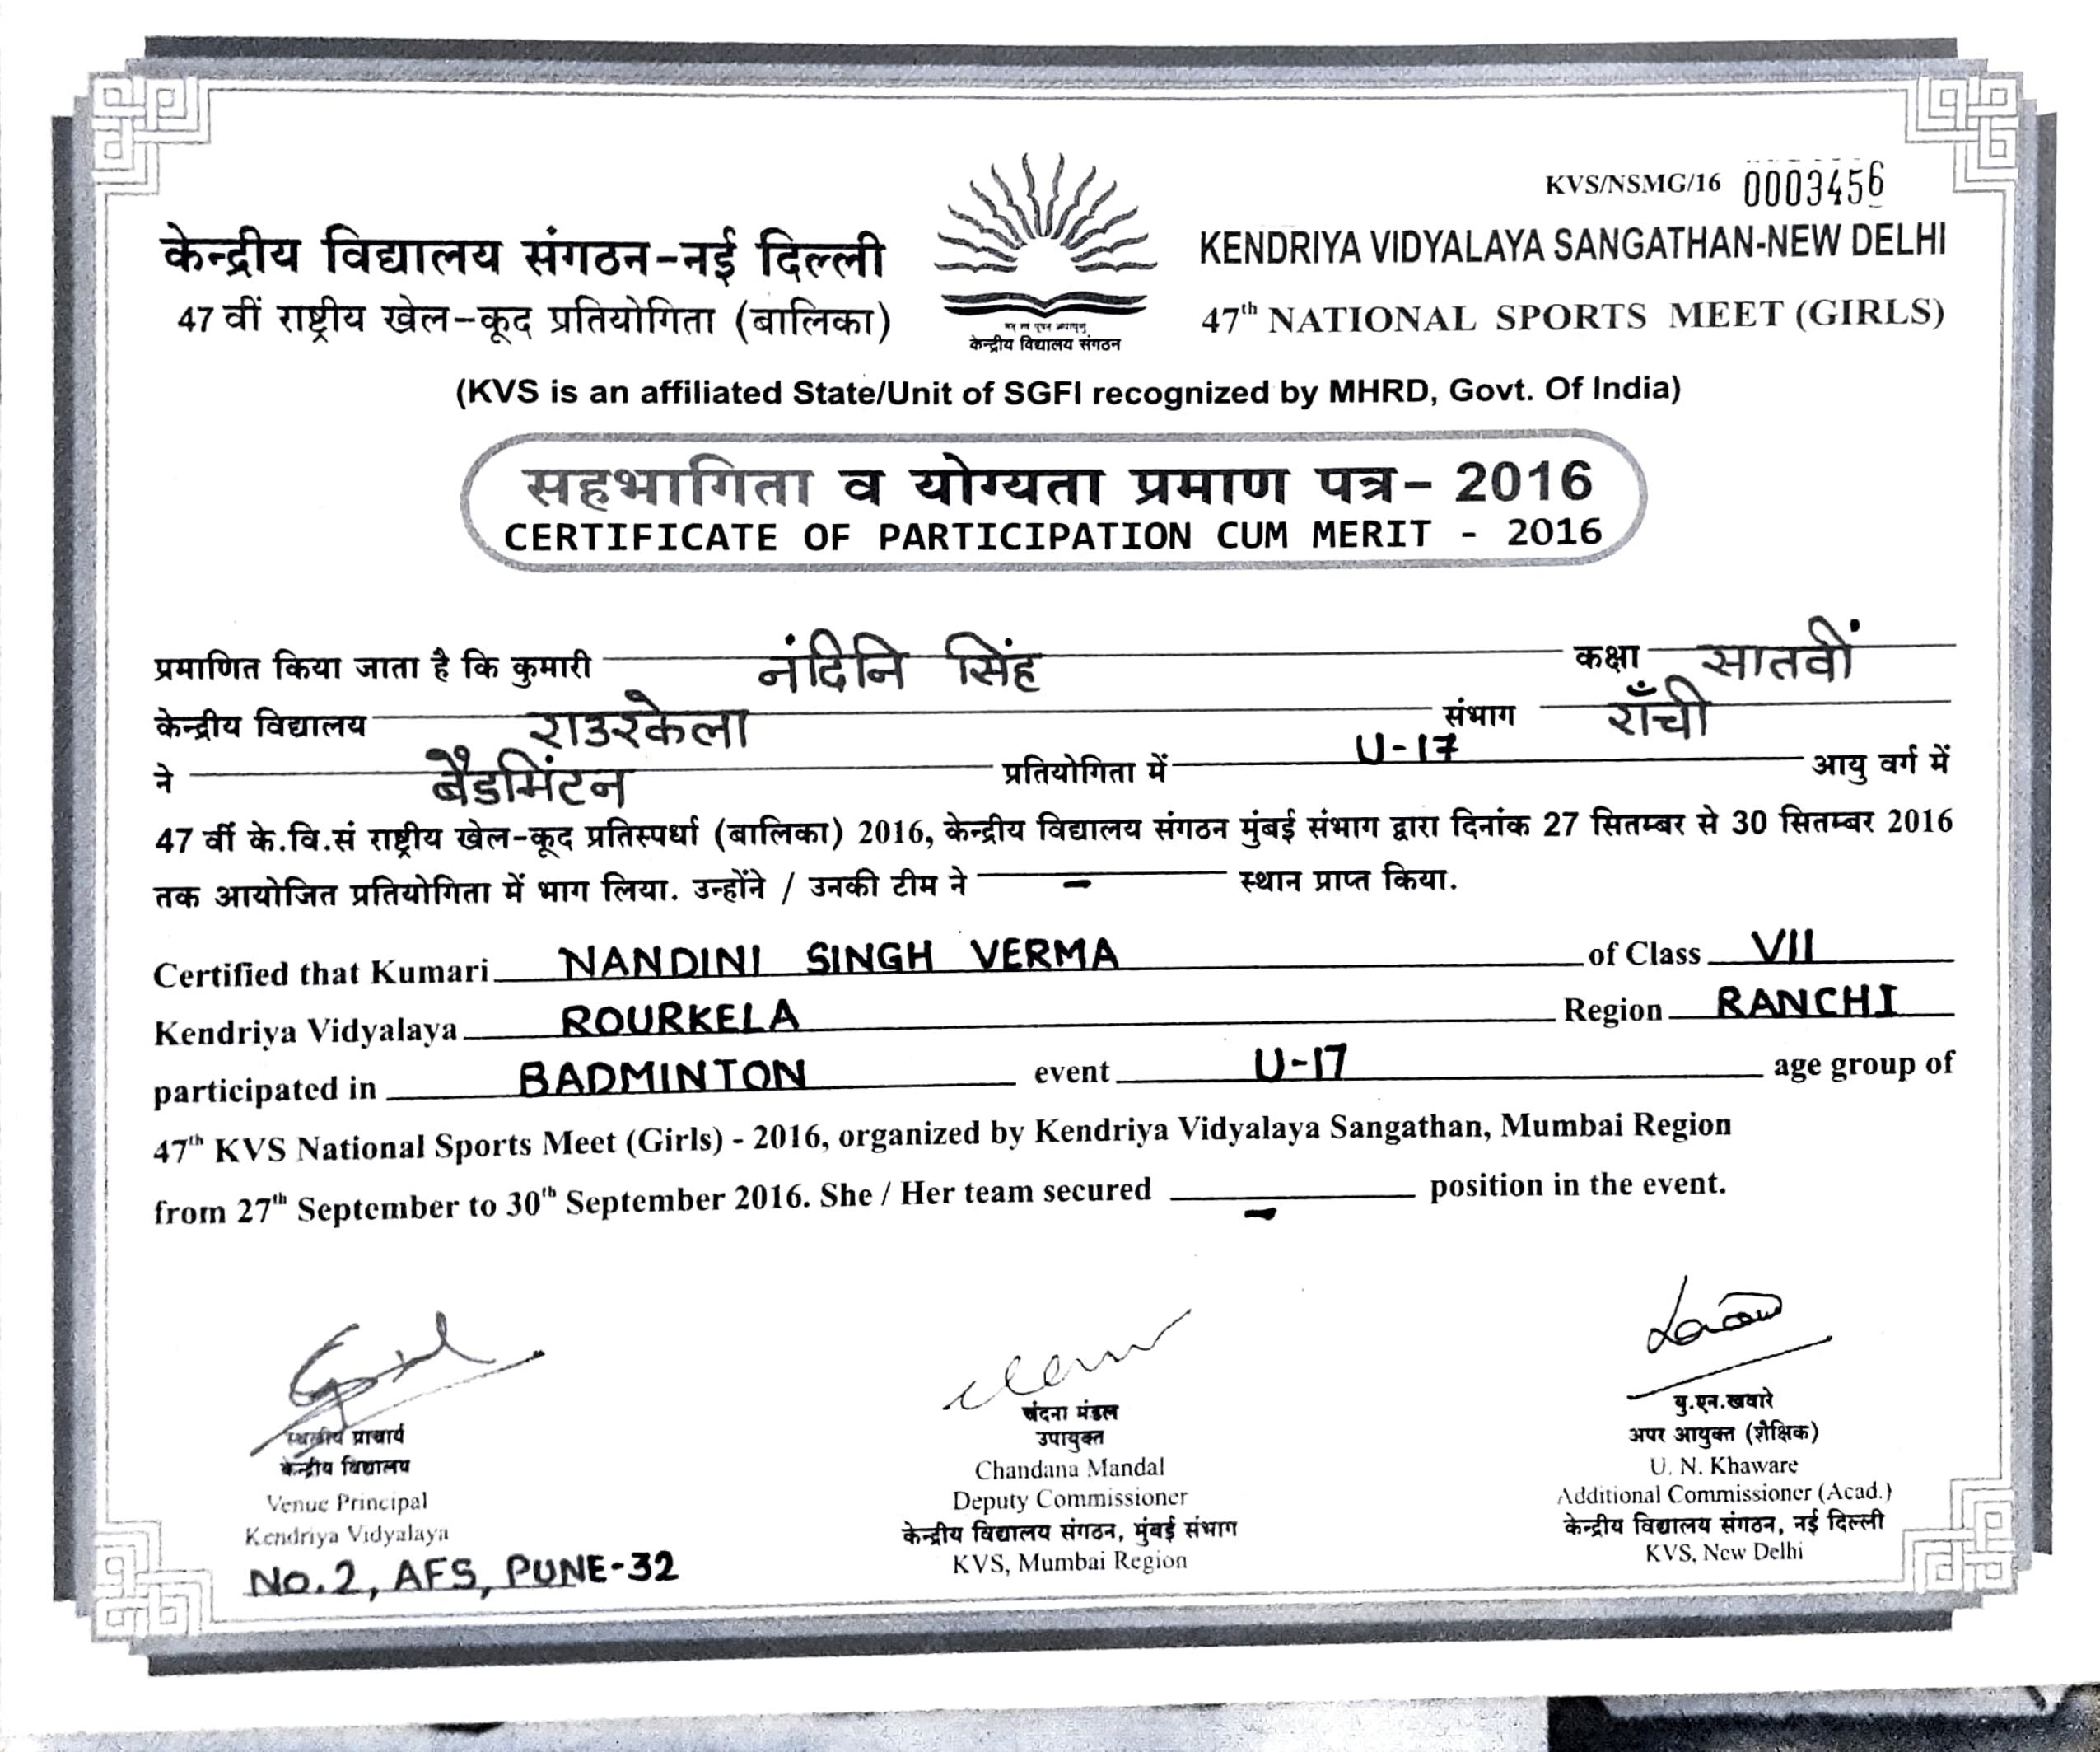 KVS/NSMG/16 0003456
केन्द्रीय विद्यालय संगठन-नई दिल्ली
47 वीं राष्ट्रीय खेल-कूद प्रतियोगिता (बालिका)
केन्द्रीय विद्यालय संगठन
KENDRIYA VIDYALAYA SANGATHAN-NEW DELHI
47th NATIONAL SPORTS MEET (GIRLS)
(KVS is an affiliated State/Unit of SGFI recognized by MHRD, Govt. Of India)
सहभागिता व योग्यता प्रमाण पत्र- 2016
CERTIFICATE OF PARTICIPATION CUM MERIT - 2016
प्रमाणित किया जाता है कि कुमारी नंदिनि सिंह कक्षा सातवीं
केन्द्रीय विद्यालय राउरकेला संभाग राँची
ने बैडमिंटन प्रतियोगिता में U-17 आयु वर्ग में
47 वीं के.वि.सं राष्ट्रीय खेल-कूद प्रतिस्पर्धा (बालिका) 2016, केन्द्रीय विद्यालय संगठन मुंबई संभाग द्वारा दिनांक 27 सितम्बर से 30 सितम्बर 2016
तक आयोजित प्रतियोगिता में भाग लिया. उन्होंने / उनकी टीम ने - स्थान प्राप्त किया.
Certified that Kumari NANDINI SINGH VERMA of Class VII
Kendriya Vidyalaya ROURKELA Region RANCHI
participated in BADMINTON event U-17 age group of
47th KVS National Sports Meet (Girls) - 2016, organized by Kendriya Vidyalaya Sangathan, Mumbai Region
from 27th September to 30th September 2016. She / Her team secured - position in the event.
स्थलीय प्राचार्य
केन्द्रीय विद्यालय
Venue Principal
Kendriya Vidyalaya
No.2, AFS, PUNE-32
चंदना मंडल
उपायुक्त
Chandana Mandal
Deputy Commissioner
केन्द्रीय विद्यालय संगठन, मुंबई संभाग
KVS, Mumbai Region
यु.एन.खवारे
अपर आयुक्त (शैक्षिक)
U. N. Khaware
Additional Commissioner (Acad.)
केन्द्रीय विद्यालय संगठन, नई दिल्ली
KVS, New Delhi